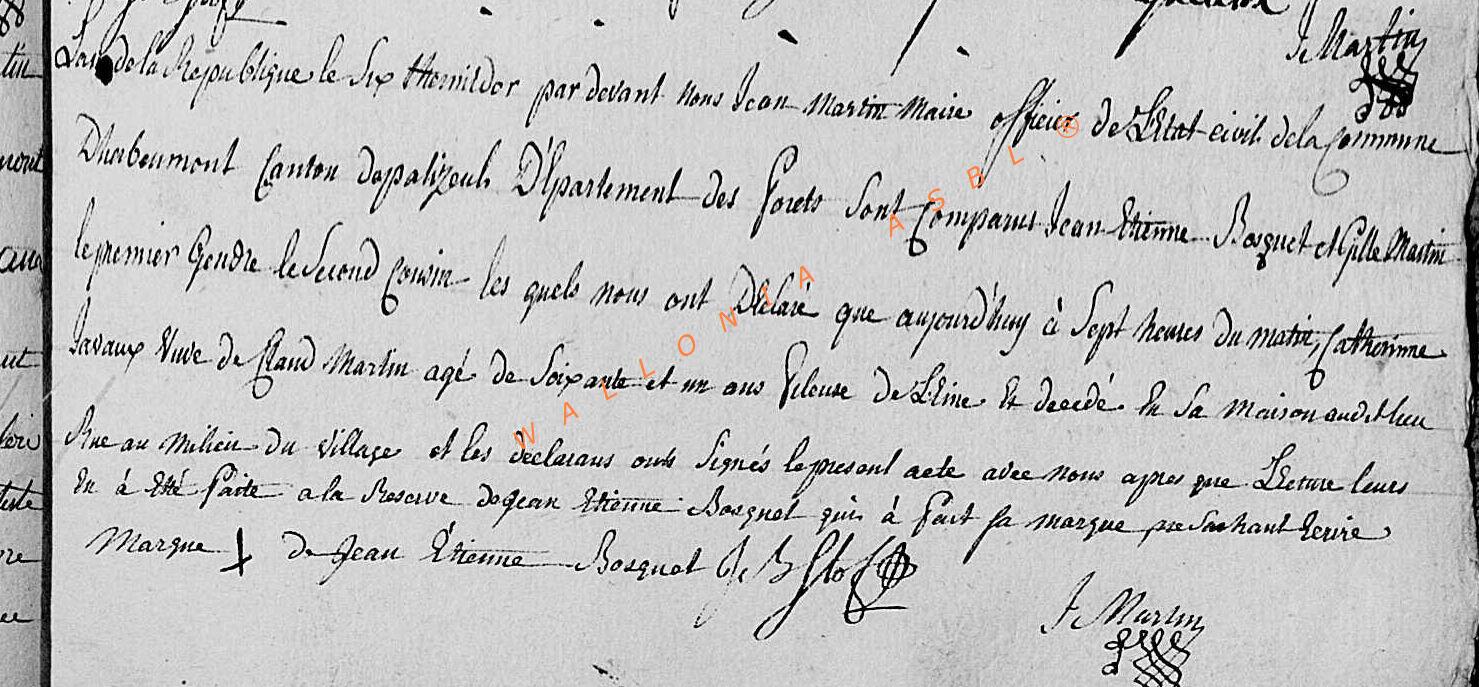 J Martin
de la Republique le Six thermidor par devant nous Jean Martin Maire officier de L'Etat civil de la Commune
D'herbeumont Canton de palizeul Département des Forets Sont Comparus Jean Etienne Bosquet et Gille Martin
le premier Gendre le Second Cousin les quels nous ont Déclaré que aujourd'huy à Sept heures du matin, Catherinne
Javaux Vuve de Claud Martin agé de Soixante et un ans fileuse de Leine Et decedé En Sa maison audit lieu
Rue au Milieu du Village et les declarans onts Signés le present acte avec nous apres que Lecture leurs
En à Eté faite a la Reserve de Jean Etienne Bosquet qui à fait sa marque ne Sachant Ecrire
Marque de Jean Etienne Bosquet
J Martin
W A L L O N I A A S B L ®